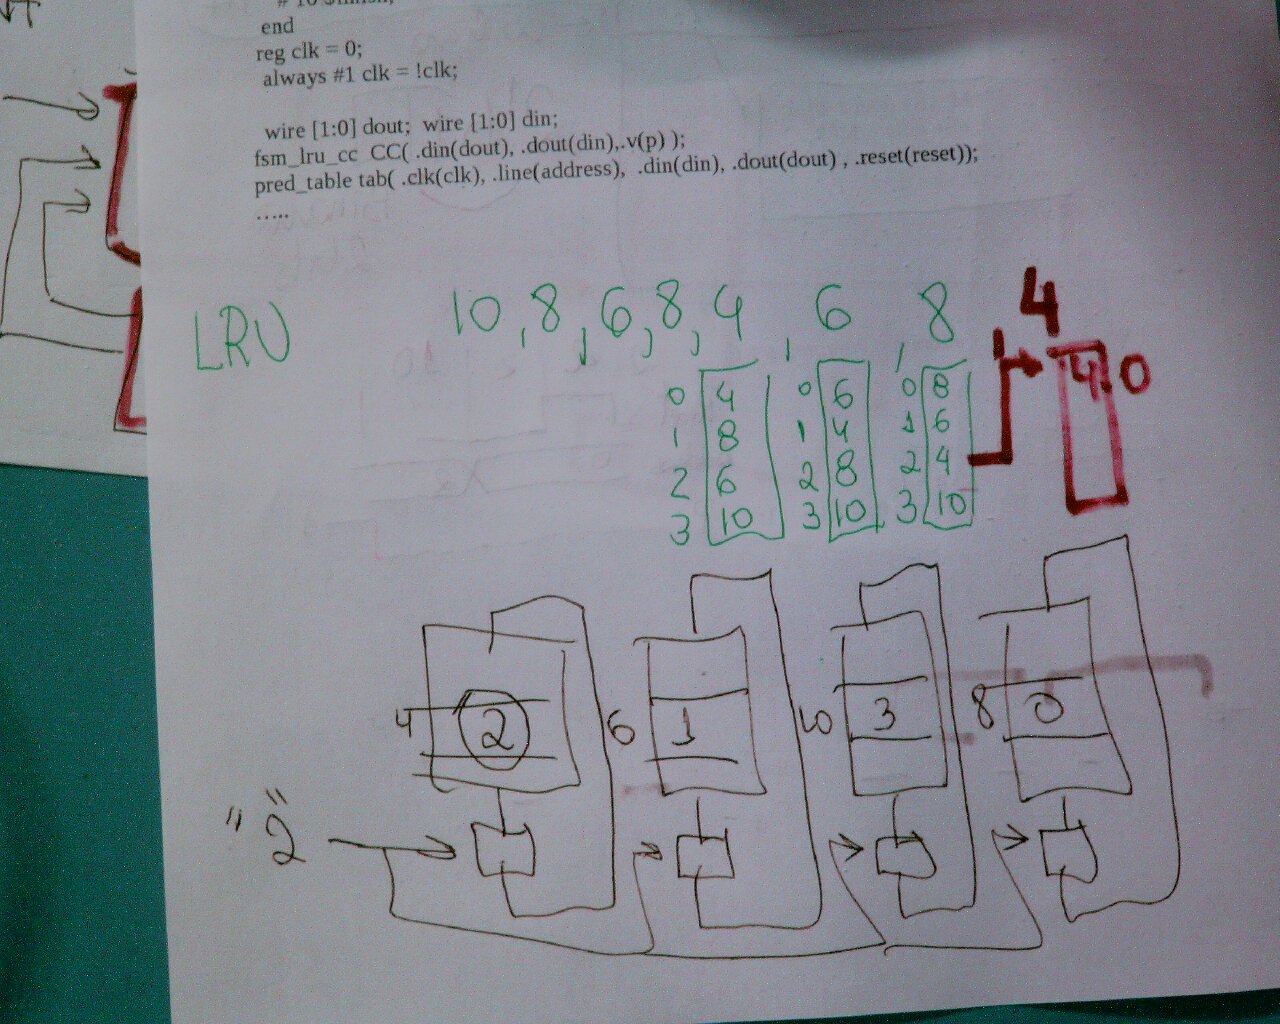 end
reg clk = 0;
always #1 clk = !clk;
wire [1:0] dout; wire [1:0] din;
fsm_lru_cc CC( .din(dout), .dout(din),.v(p) );
pred_table tab( .clk(clk), .line(address), .din(din), .dout(dout) , .reset(reset));
.....
LRU 10, 8, 6, 8, 4, 6, 8 4
0 4 0 6 0 8 4 0
1 8 1 4 1 6
2 6 2 8 2 4
3 10 3 10 3 10
4 2 6 1 10 3 8 0
"2"